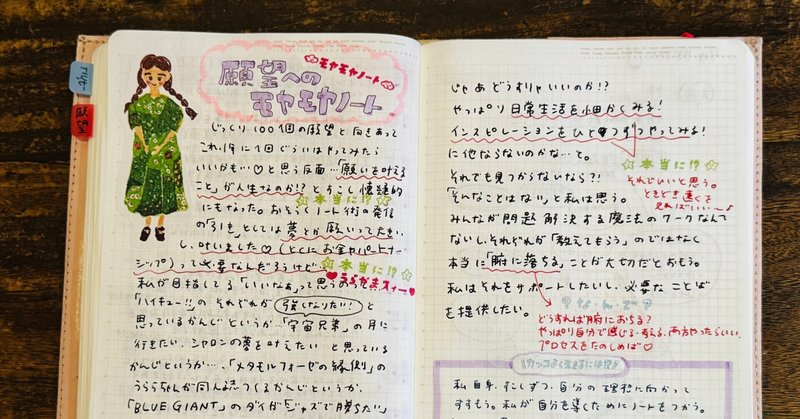 モヤモヤノート
願望への
モヤモヤノート
じっくり100個の願望と向きあって
これ、1年に1回ぐらいはやってみたら
いいかも…♡と思う反面…「願いを叶える
こと」が人生なのか!?とすこし懐疑的
☆本当に!?☆
にもなった。おそらくノート術の発信
の「引き」としては夢とか願いって大きい
し、叶いました♡(とくにお金やパートナー
シップ)って必要なんだろうけど…
☆本当に!?☆
♥うらがまスィー♥
私が目指してる「いいなぁ」って思うのって
「ハイキュー!!」のそれぞれが「強くなりたい!」と
思っているかんじというか…「宇宙兄弟」の月に
行きたい、シャロンの夢を叶えたいと思っている
かんじというか…、「メタモルフォーゼの縁側」の
うららちゃんが同人誌つくるかんじというか、
「BLUE GIANT」のダイが「ジャズで勝ちたい」
願望
じゃあどうすりゃいいのか!?
やっぱり日常生活を細かくみる!
インスピレーションをひとつずつやってみる!
に他ならないのかな…と。
☆本当に!?☆
それでも見つからないなら?!
それでいいと思う。
ときどき遠くを
見ればいい〜♪
「そんなことはない」と私は思う。
みんなが問題解決する魔法のワークなんて
ないし、それぞれが「教えてもらう」のではなく
本当に「腑に落ちる」ことが大切だとおもう。
私はそれをサポートしたいし、必要なことば
を提供したい。
?な・ん・で?
どうすれば腑におちる?
やっぱり自分で感じる・考える、両方やったらいい
プロセスをたのしめば♡
カッコよく生きるには!?
私自身、すこしずつ、自分の理想に向かって
すすもう。私が自分を導くためにノートをつかう。